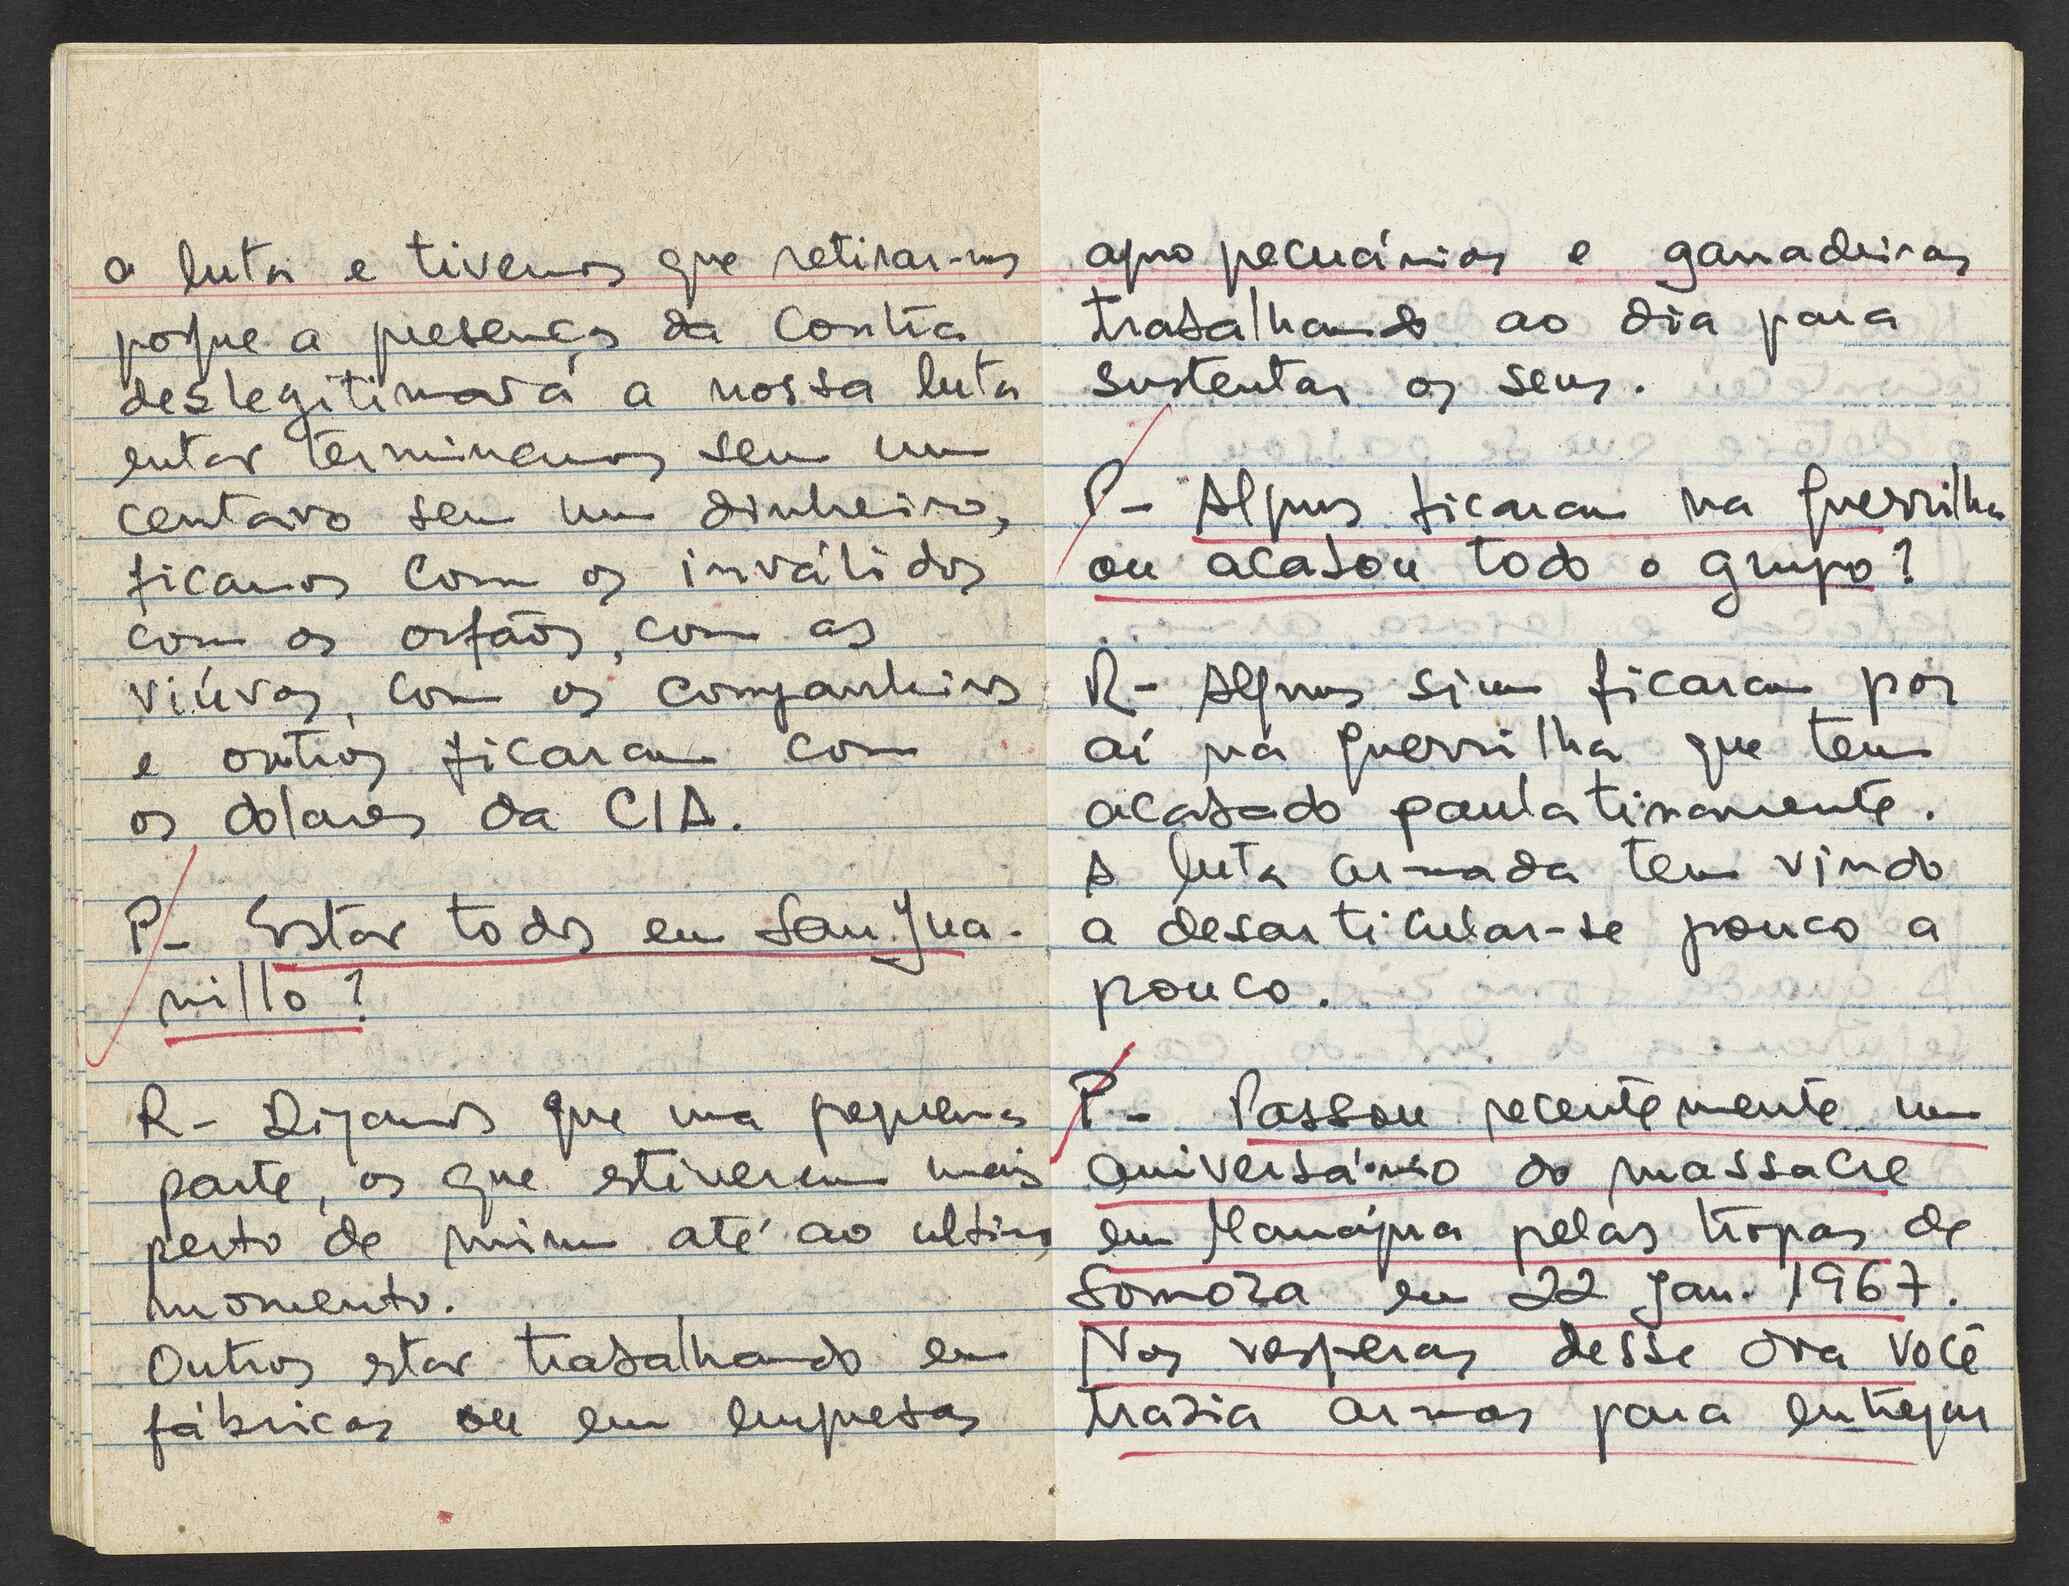 a luta e tivemos que retirar-nos
porque a presença da Contra
deslegitimará a nossa luta
entar terminamos sem um
centavo sem um dinheiro,
ficamos com os inválidos
com os orfãos, com as
viúvas, com os companheiros
e outros ficaram com
os dolares da CIA.
P- Estar todos em San Jua-
nillo?
R- Digamos que uma pequena
parte, os que estiveram mais
perto de mim até ao ultimo
momento.
Outros estar trabalhando em
fábricas ou em empresas
agropecuárias e ganadeiras
trabalhando ao dia para
sustentar os seus.
P- Alguns ficaram na guerrilha
ou acabou todo o grupo?
R- Alguns sim ficaram por
aí na guerrilha que tem
acabado paulatinamente.
A luta armada tem vindo
a desarticular-se pouco a
pouco.
P- Passou recentemente um
aniversário do massacre
em Manágua pelas tropas de
Somoza em 22 Jan. 1967.
Nas vesperas desse dia você
trazia armas para entregar